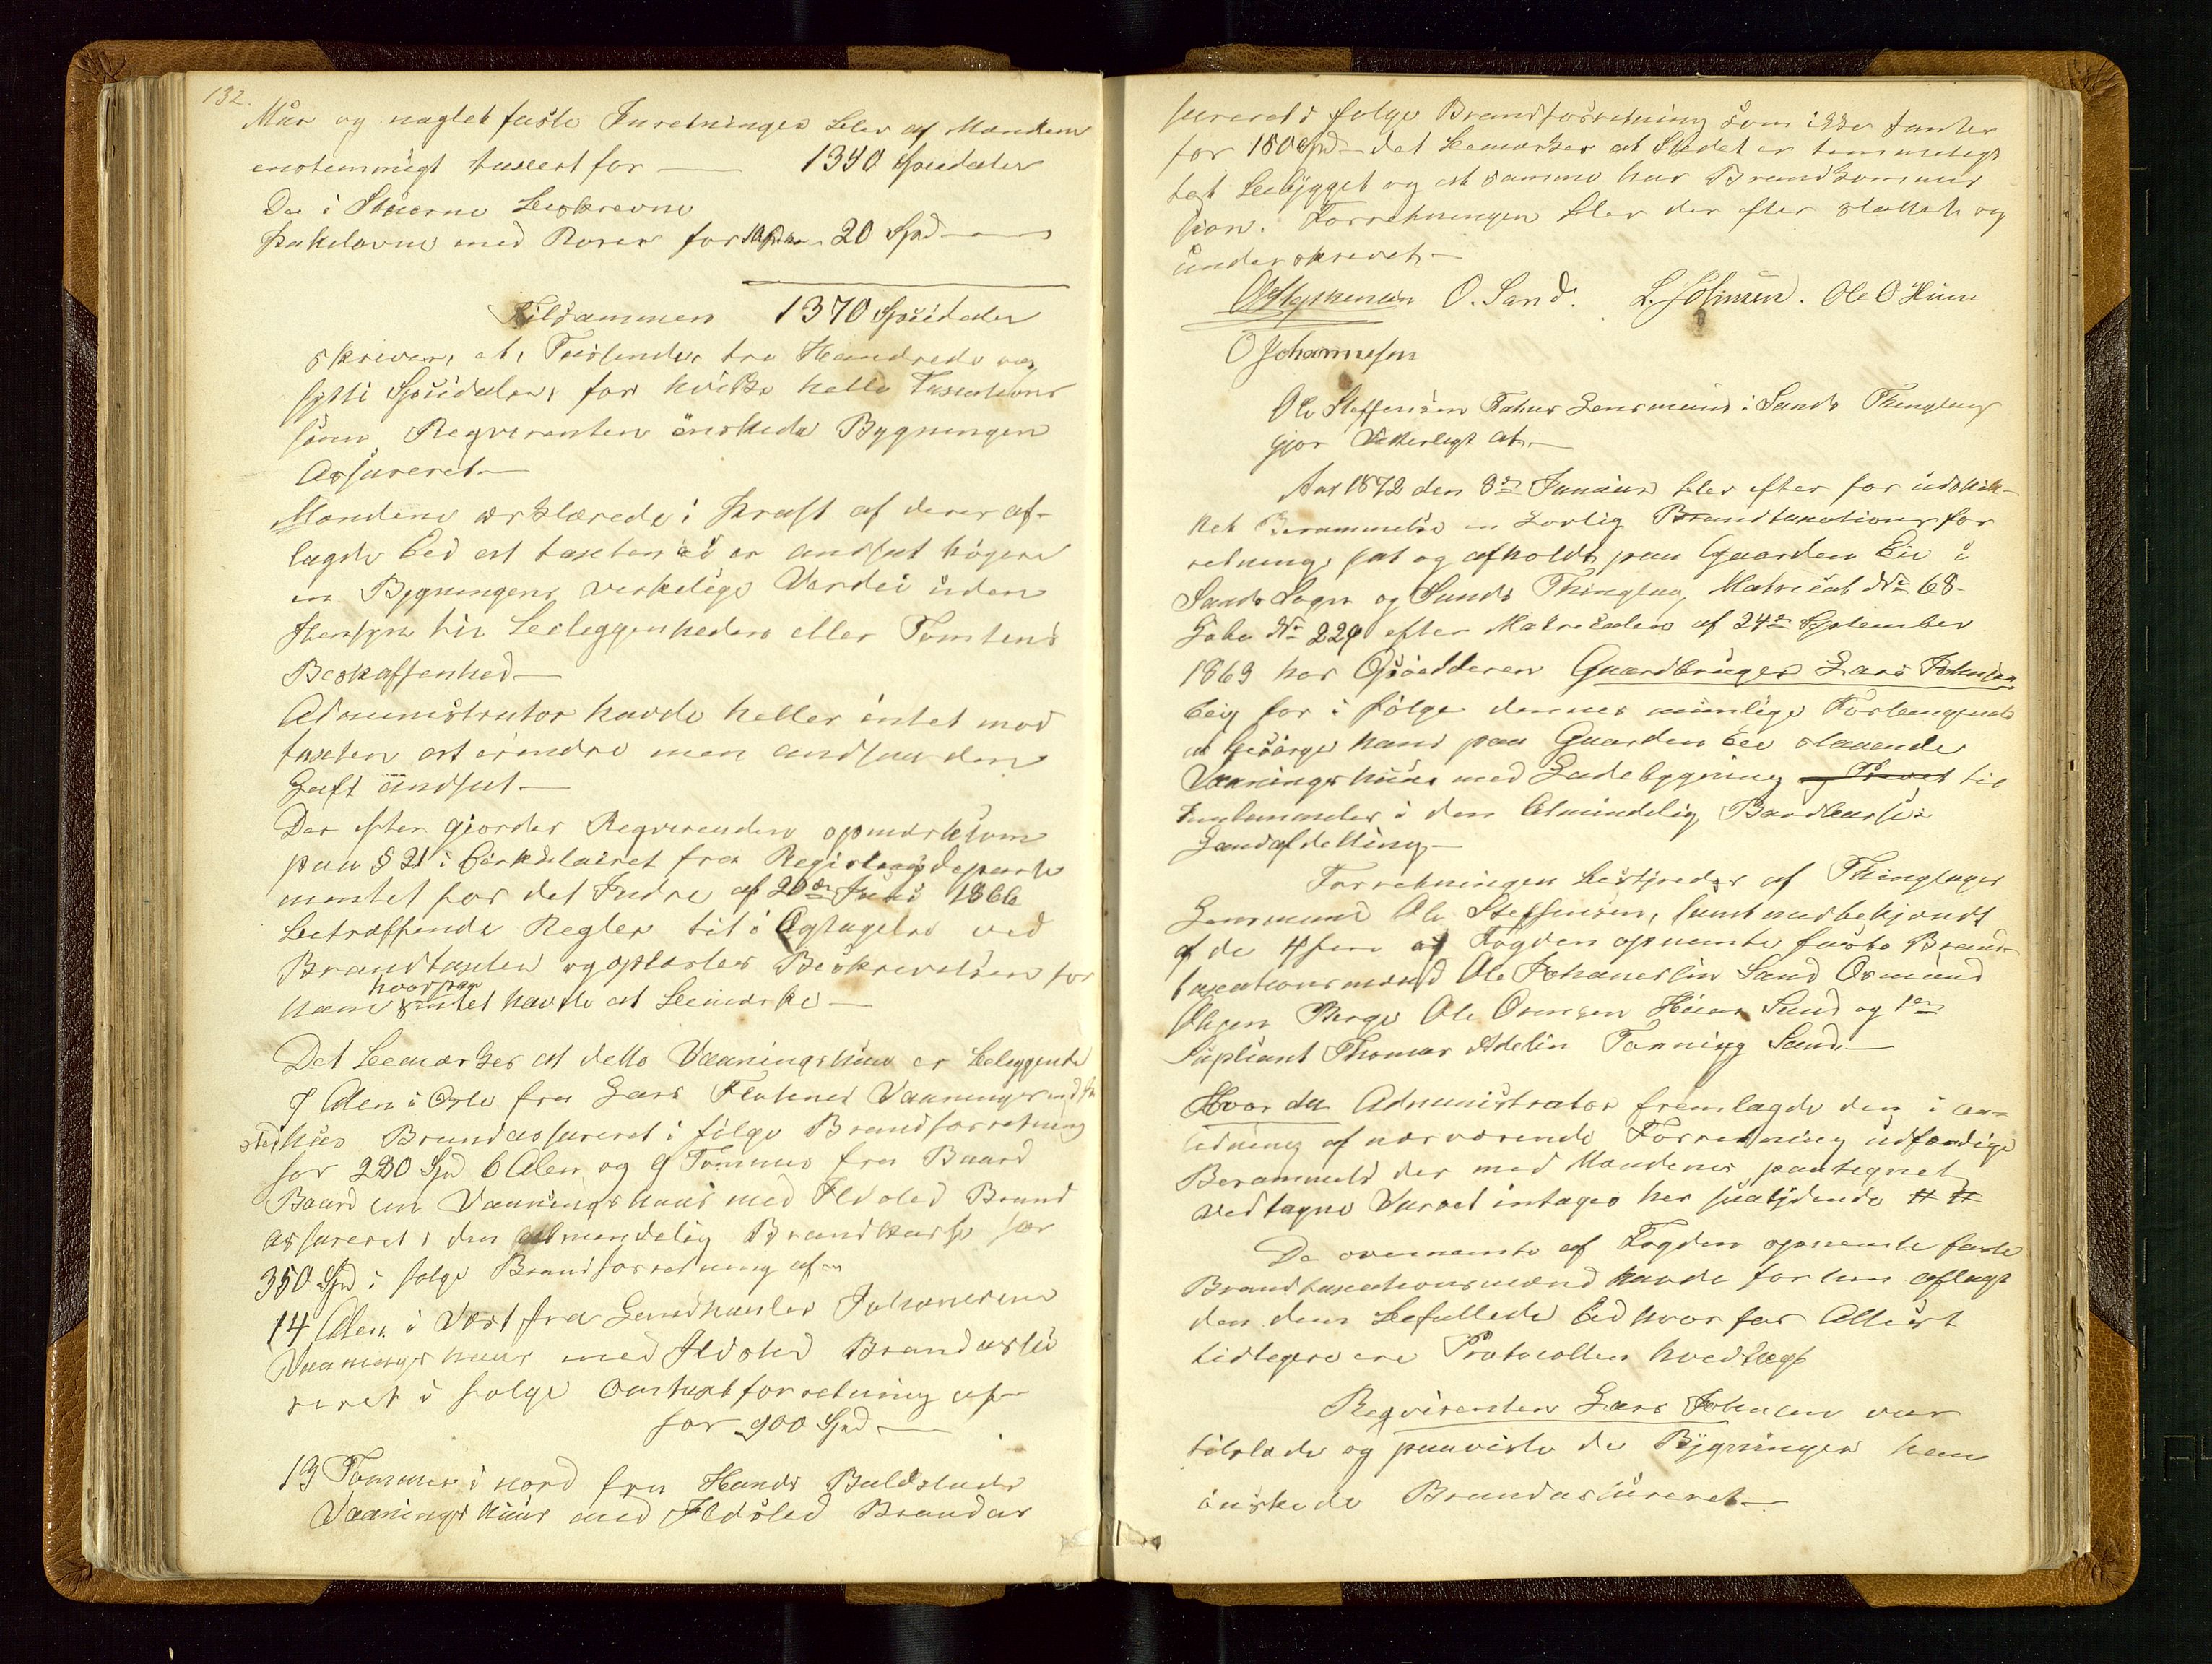 132.
Mur og naglet faste Inretninger blev af Mændene
enstemmigt taxert for — 1350 Speciedaler
De i Stuerne beskrevne
Kakelovne med Rører for 20 Spd
Tilsammen 1370 Speciedaler
skriver, et, Tusende, tre Hundrede og
sytti Speciedaler, for hvilke hele Taxations
sum Reqvirenten önskede Bygningen
Assureret —
Mændene erklærede i Kraft af deres af-
lagde Eed at taxten ei er andsat högere
en Bygningens virkelige Værdi uden
Hensyn til Beleggenheden eller Tomtens
Beskaffenhed —
Administrator havde heller intet mod
taxten at erindre men andsaa den
Laft andsat —
Der efter giordes Reqvirenten opmærksom
paa § 21 i Cirkulairet fra Regieringsdeparte
mentet for det Indre af 20de Juni 1866
betræffende Regler til i Agtagelse ved
Brandtaxter og oplæstes Beskrivelsen for
ham hvorpaa intet havde at bemærke —
Det bemærkes at dette Vaaningshuus er beleggende
7 Alen i Öst fra Lars Vaaninger
sted huus Brandassureret i fölge Brandforretning
for 230 Spd 6 Alen og 9 Tommer fra Baard
Vaanings huus med Ildsted Brand
assureret i den almindelig Brandkasse for
350 Spd i fölge Brandforretning af —
14 Alen i Vest fra Landhandler Johanesens
Vaanings huus med Ildsted Brandassu
reret i fölge af —
for 900 Spd —
13 Tommer i nord fra Hans
Vaanings huus med Ildsted Brandas
sureret i fölge Brandforretning som ikke
for 150 Spd — det bemærkes at Stedet er temmeligt
tæt bebygget og at samme har Brandkommis
sion. Forretningen blev der efter sluttet og
underskrevet —
O. Sand. L. Johnsen. Ole O Hiim
O Johannesen
Ole Steffensen Lensmand i Sands Thinglag
Gjør Vitterligt at —
Aar 1872 den 8de Januar blev efter for udskik-
ket Berammelse en Lovlig Brandtaxations for
retning sat og afholdt paa Gaarden Eie i
Sands Sogn og Sands Thinglag Matricul No 68-
Løbe No 229 efter Matriculen af 24de September
1863 hos Opsidderen Gaardbruger Lars Johnsen
Eeig for i fölge dennes mundlige Forlangende
at besörge hans paa Gaarden Eie staaende
Vaanings huus med Ladebygning til
i den Almindelig
Landafdelling —
Forretningen bestyredes af Thinglagets
Lensmand Ole Steffensen, samt medbekjendt
af de Fogden opnemte faste Brand
taxationsmænd Ole Johanesen Sand Osmund
Olsen Berge Ole Osmsen Hiim Sand og 1ste
Supliant Thomas Adelin Fanning Sand —
Hvor da Administrator fremlagde den i an-
ledning af nærværende Forretning udfærdige
Berammelse der med Mændenes paategnet
vedtagne Varsel intages her saalydende # #
De overnemte af Fogden opnemte faste
Brandtaxationsmænd havde forhen aflagt
den dem befallede Eed hvorfor Attest
tidligere ere Protocollen hvedlagt
Reqvirenten Lars Johnsen var
tilstede og paaviste de Bygninger han
önskede Brandassureret —